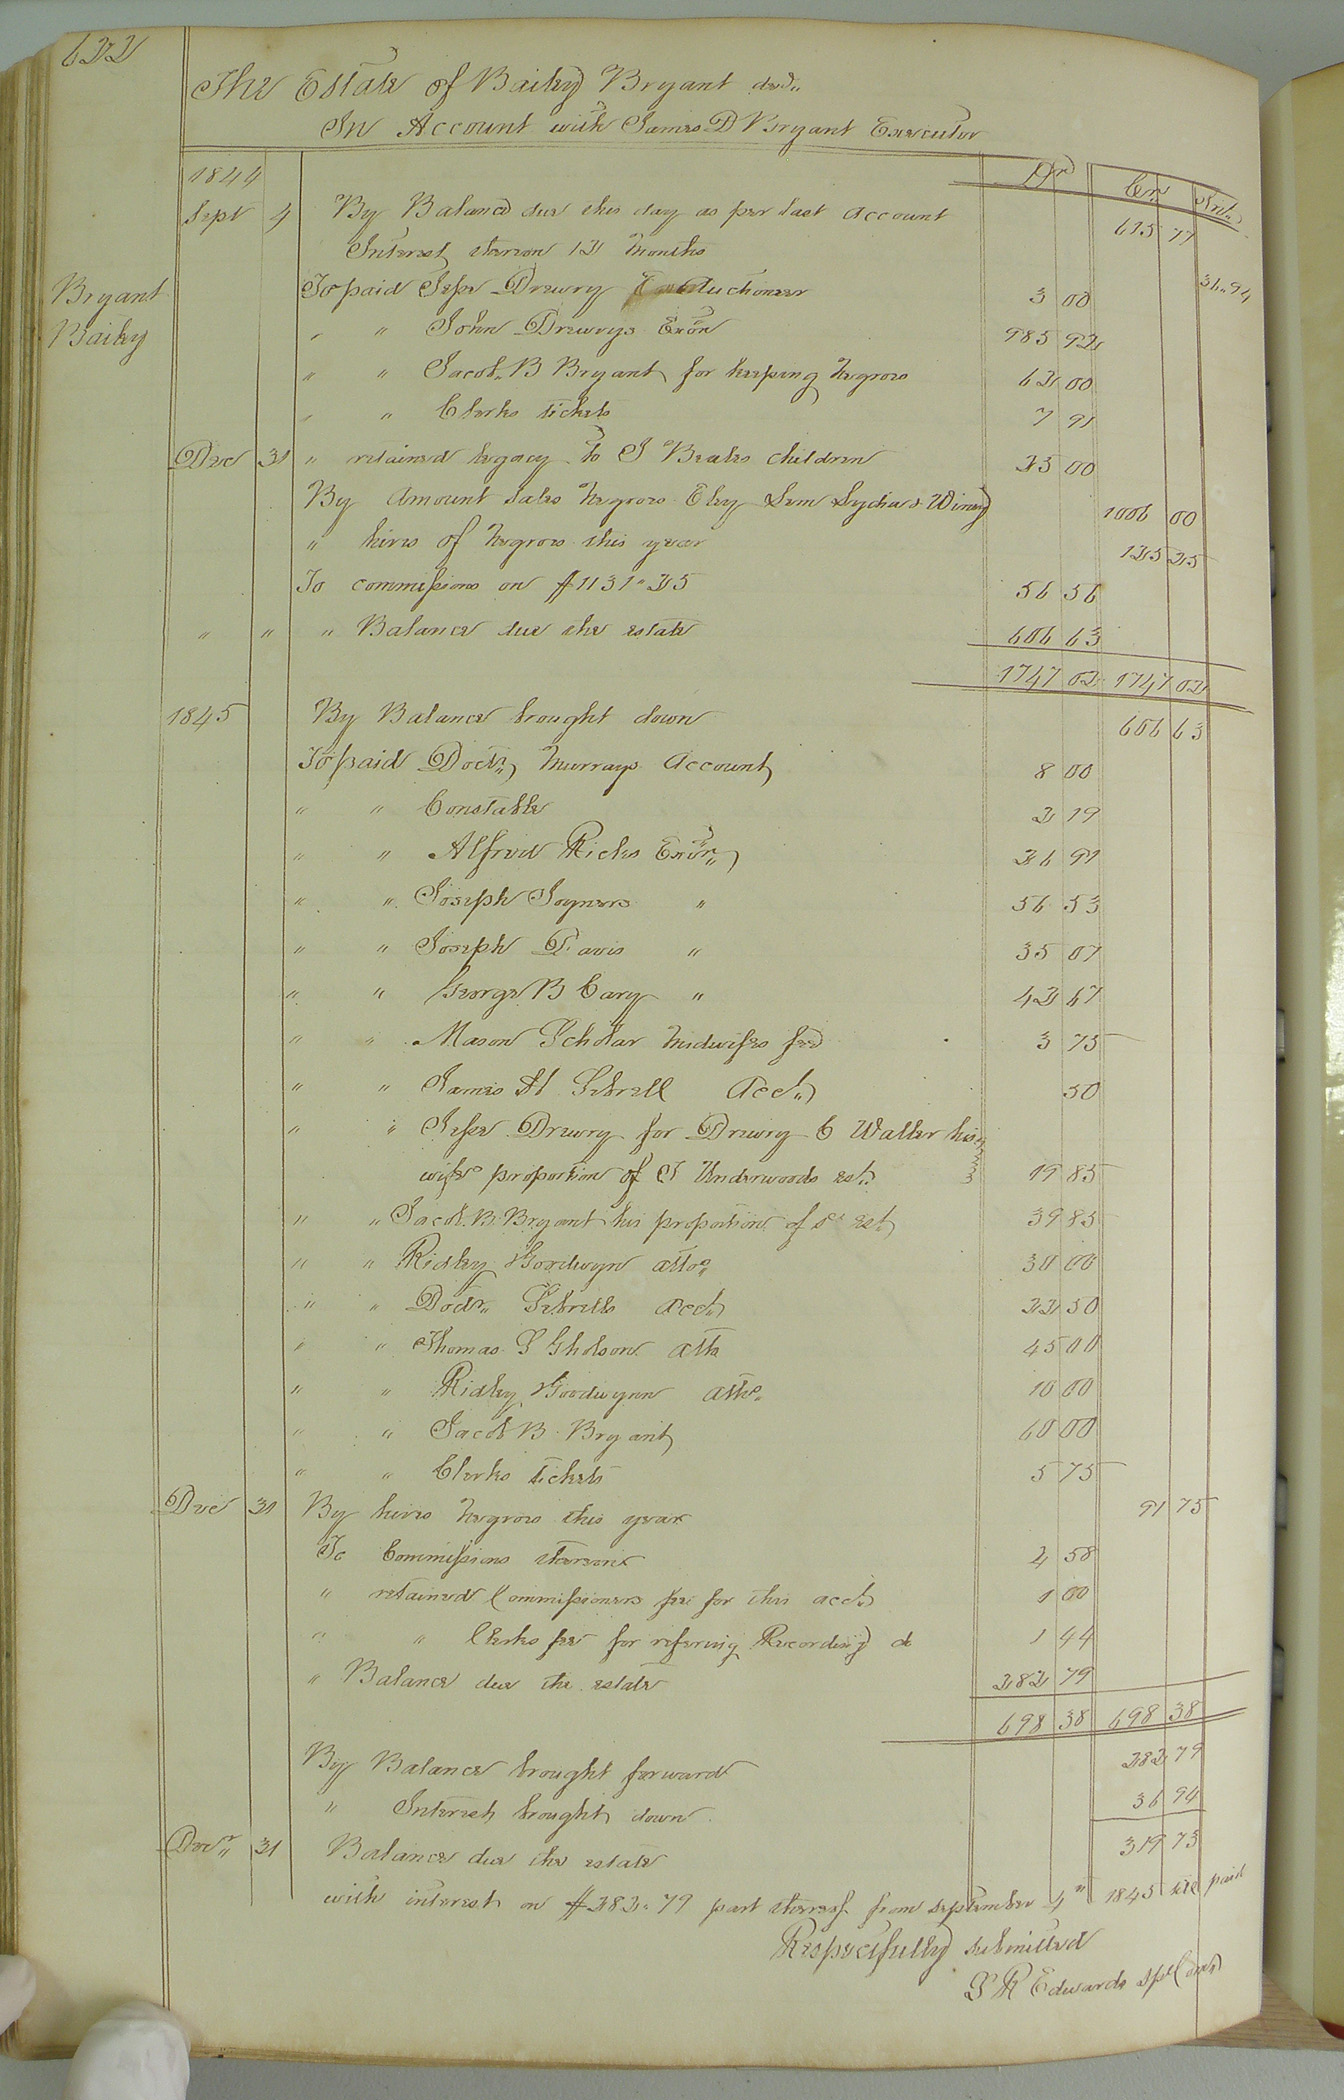 622
The Estate of Baily Bryant decd.
In Account with James D Bryant Executor
Dr Cr Int.
1844
Sept 4 By Balance due this day as per last account 615 77
Interest thereon 12 months 36.94
Bryant
Baily
To paid Jesse Drewry Auctioneer 3 00
" " John Drewrys Exor 985 92
" " Jacob B Bryant for keeping negroes 62 00
" " Clerks tickets 7 91
Dec 31 " retained legacy to J Beales children 25 00
By Amount sales negroes Eley Sem Lydia & Winny 1006 00
" hires of negroes this year 125 25
To commissions on $1131.25 56 56
" " " Balance due the estate 606 63
1747 02 1747 02
1845 By Balance brought down 606 63
To paid Doctr. Murrays Account 8 00
" " Constable 2 19
" " Alfred Ricks Exor. 26 91
" " Joseph Joyners " 56 53
" " Joseph Davis " 35 07
" " George B Cary " 42 67
" " Mason Scholar midwifes fee 3 75
" " James H Sebrell Acct. 50
" " Jesse Drewry for Drewry C Waller his
wifes proportion of J Underwoods est. 19 85
" " Jacob B Bryant his proportion of sd est. 39 85
" " Ridley Goodwyn atto. 30 00
" " Doctr. Sebrells acct. 22 50
" " Thomas S Gholson atto 45 00
" " Ridley Goodwynn atto. 10 00
" " Jacob B Bryant 60 00
" " Clerks tickets 5 75
Dec 31 By hires negroes this year 91 75
To Commissions thereon 4 58
" retained Commissioners fee for this acct. 1 00
" " Clerks fee for refering Recording do 1 44
" Balance due the estate 282 79
698 38 698 38
By Balance brought forward 282 79
" Interest brought down 36 94
Decr. 31 Balance due the estate 319 73
with interest on $282.79 part thereof from september 4th 1845 till paid
Respectfully submitted
J R Edwards spl Comr